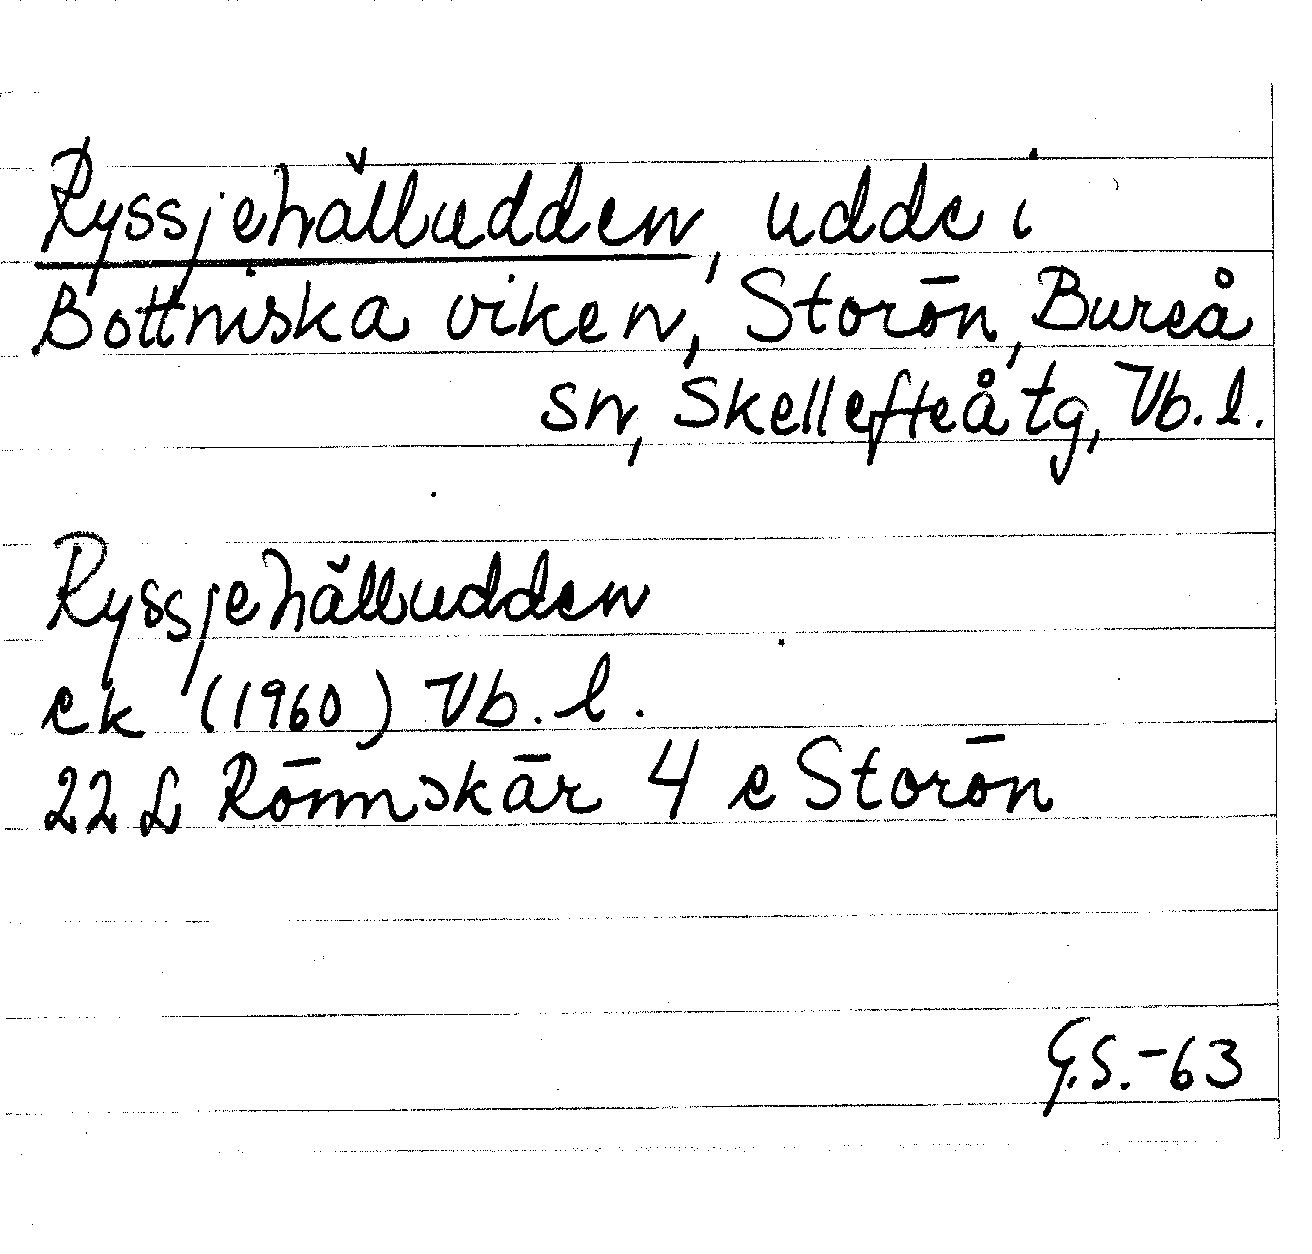 Ryssjehälludden, udde i
Bottniska viken, Storön, Bureå
sn, Skellefteå tg, Vb. l.
Ryssjehälludden
ek (1960) Vb. l.
22 L Rönnskär 4 e Storön
G.S.-63